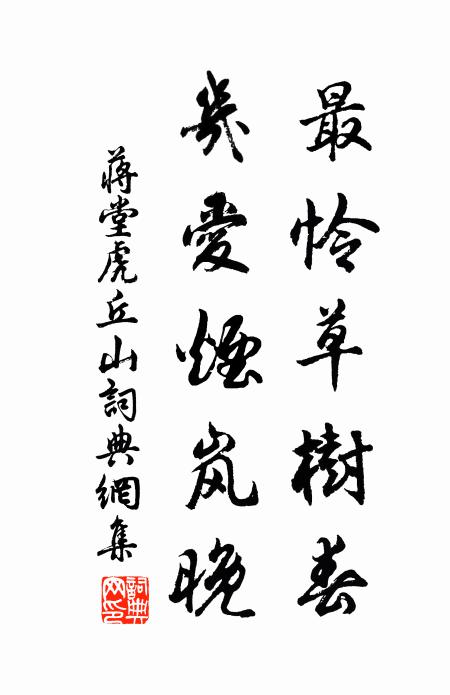 最怜草樹春
幾愛煙岚晚
蔣堂虎丘山詞典網集
詞典
网印